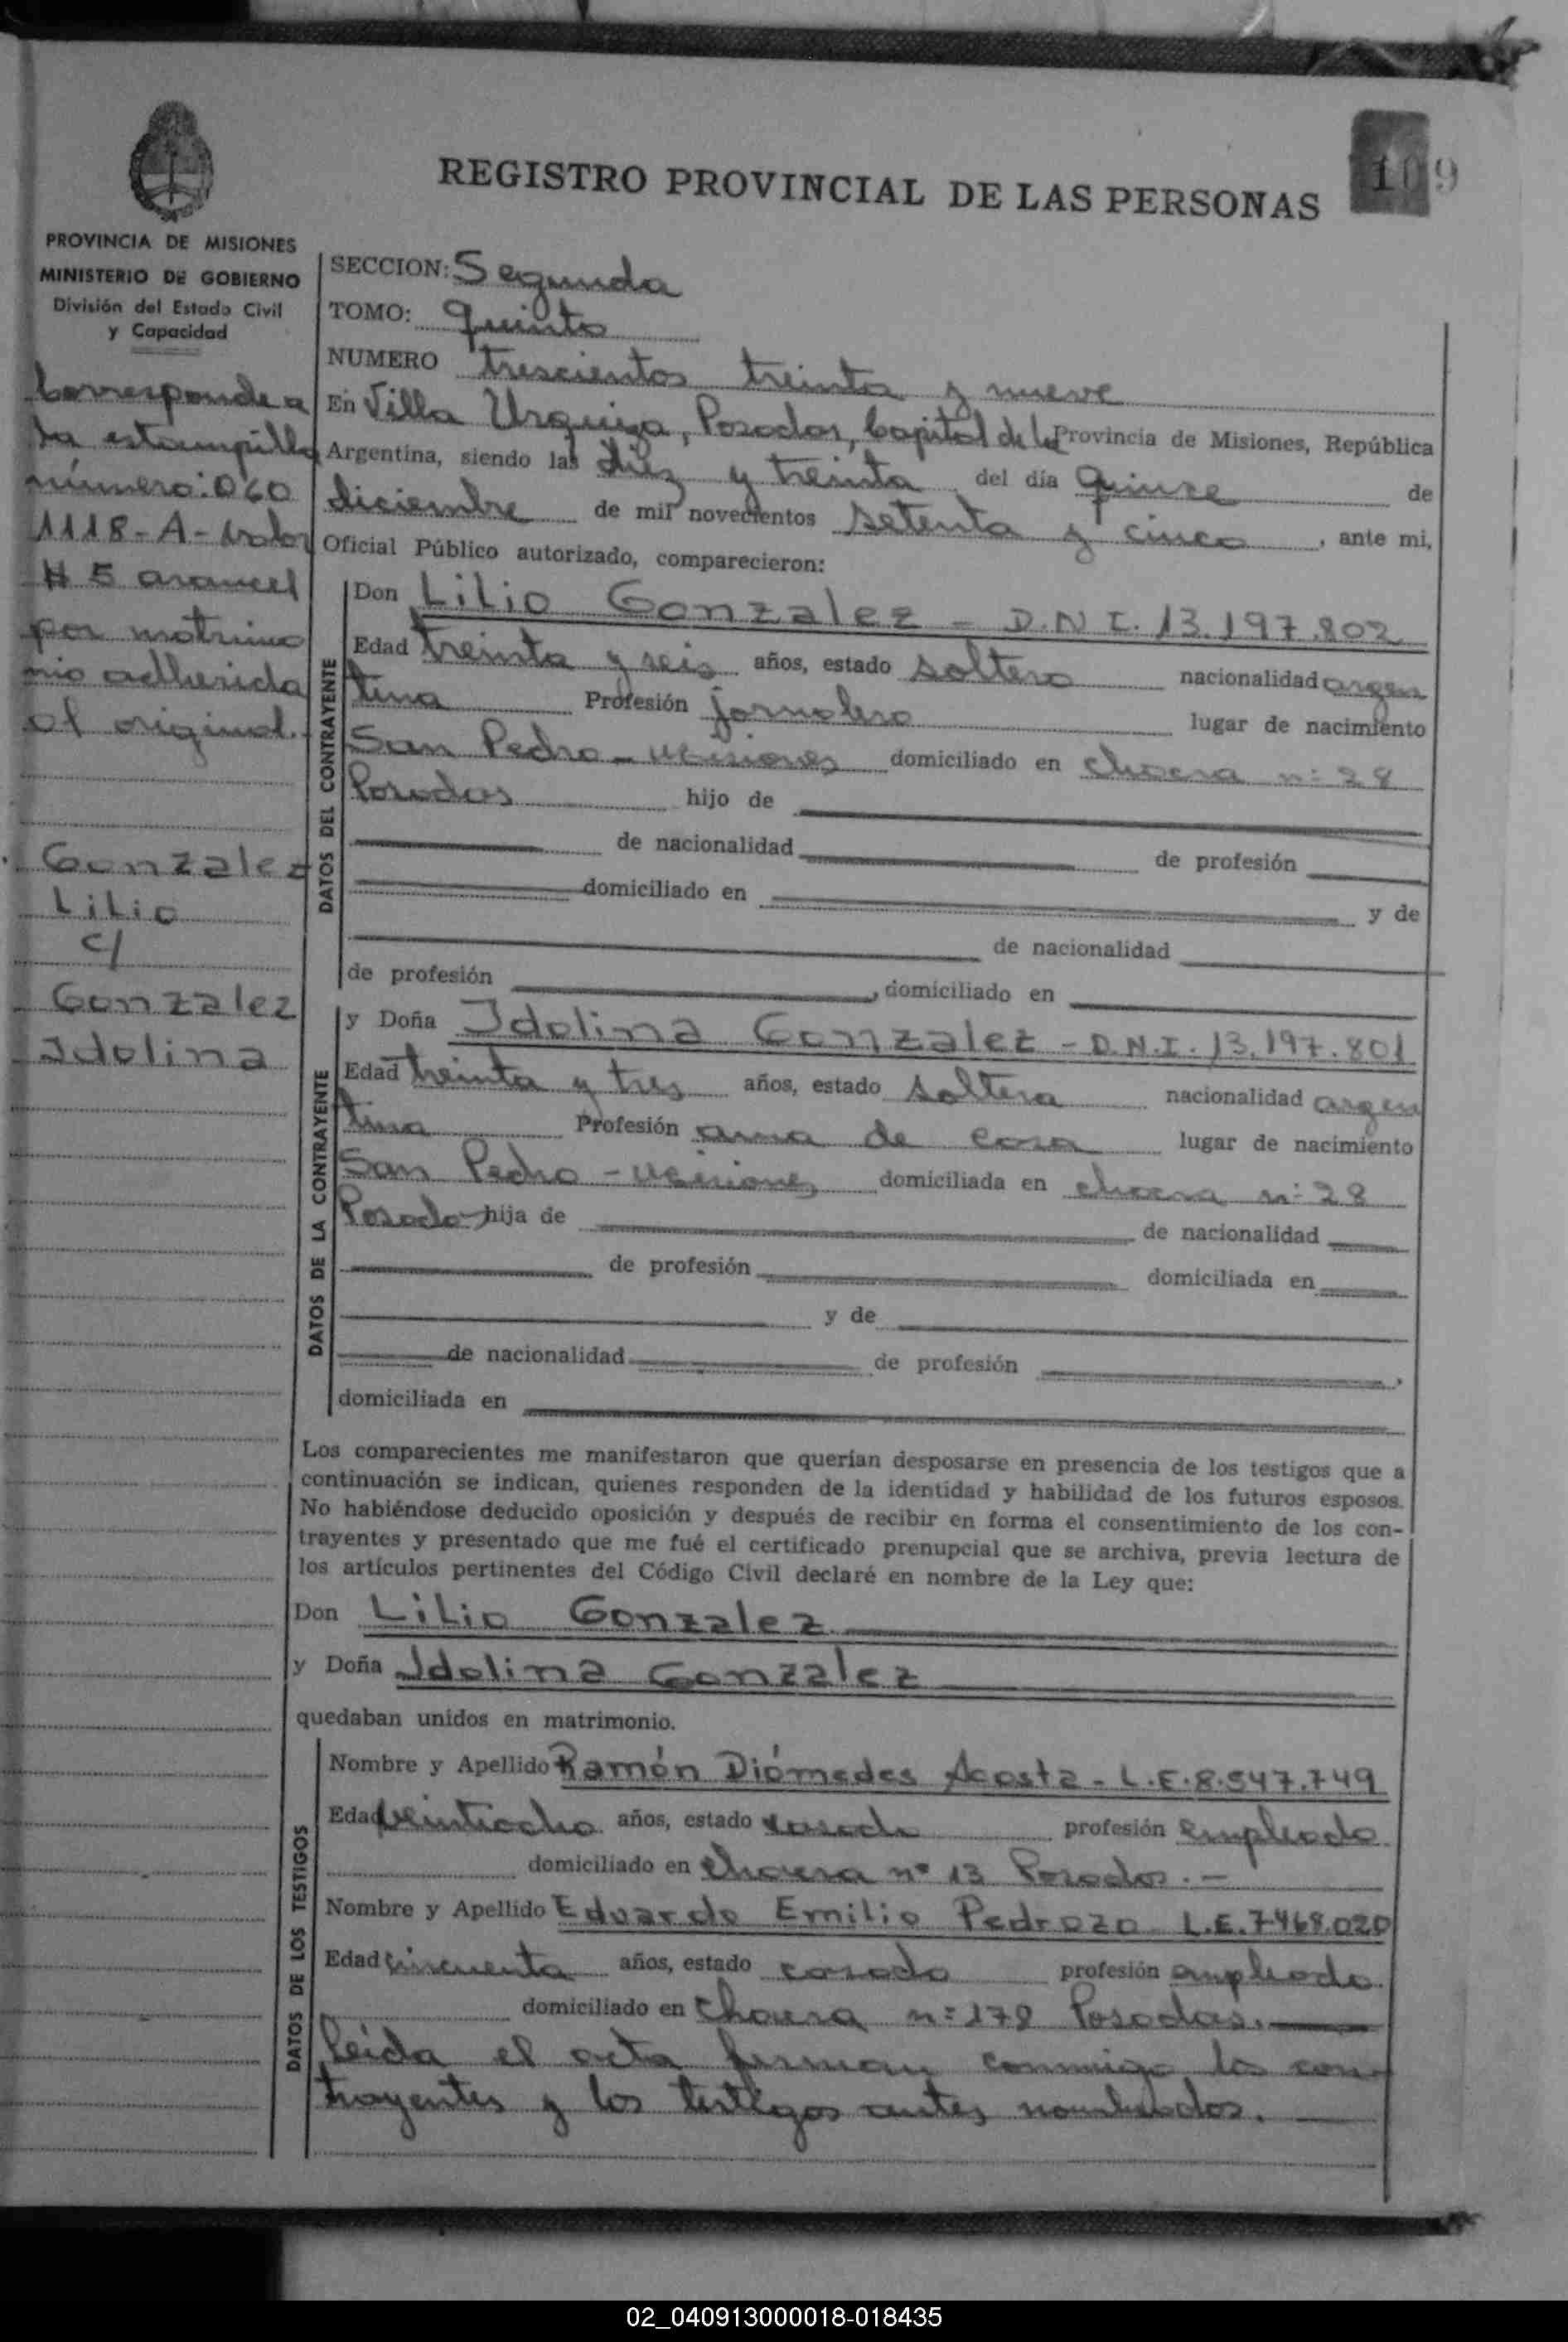 109
REGISTRO PROVINCIAL DE LAS PERSONAS
PROVINCIA DE MISIONES
MINISTERIO DE GOBIERNO
División del Estado Civil
y Capacidad
Corresponde a
la estampilla
número: 060
1118-A-valor
# 5 arancel
por matrimo
nio adherida
al original.
Gonzalez
Lilio
c/
Gonzalez
Idolina
SECCION: Segunda
TOMO: quinto
NUMERO trescientos treinta y nueve
En Villa Urquiza, Posadas, Capital de la Provincia de Misiones, República
Argentina, siendo las diez y treinta del día quince de
diciembre de mil novecientos setenta y cinco, ante mi,
Oficial Público autorizado, comparecieron:
DATOS DEL CONTRAYENTE
Don Lilio Gonzalez - D.N.I. 13.197.802
Edad treinta y seis años, estado soltero nacionalidad argen
tina Profesión jornalero lugar de nacimiento
San Pedro - Misiones domiciliado en chacra n: 28
Posadas hijo de
de nacionalidad de profesión
domiciliado en y de
de nacionalidad
de profesión , domiciliado en
DATOS DE LA CONTRAYENTE
y Doña Idolina Gonzalez - D.N.I. 13.197.801
Edad treinta y tres años, estado soltera nacionalidad argen
tina Profesión ama de casa lugar de nacimiento
San Pedro - Misiones domiciliada en chacra n: 28
Posadas hija de de nacionalidad
de profesión domiciliada en
y de
de nacionalidad de profesión ,
domiciliada en
Los comparecientes me manifestaron que querían desposarse en presencia de los testigos que a
continuación se indican, quienes responden de la identidad y habilidad de los futuros esposos.
No habiéndose deducido oposición y después de recibir en forma el consentimiento de los con-
trayentes y presentado que me fué el certificado prenupcial que se archiva, previa lectura de
los artículos pertinentes del Código Civil declaré en nombre de la Ley que:
Don Lilio Gonzalez
y Doña Idolina Gonzalez
quedaban unidos en matrimonio.
DATOS DE LOS TESTIGOS
Nombre y Apellido Ramón Diómedes Acosta - L.E. 8.547.749
Edad veintiocho años, estado casado profesión empleado
domiciliado en chacra n° 13 Posadas. -
Nombre y Apellido Eduardo Emilio Pedrozo L.E. 7468.020
Edad cincuenta años, estado casado profesión empleado
domiciliado en chacra n: 178 Posadas.
Leida el acta firman conmigo los con-
trayentes y los testigos antes nombrados.
02_040913000018-018435